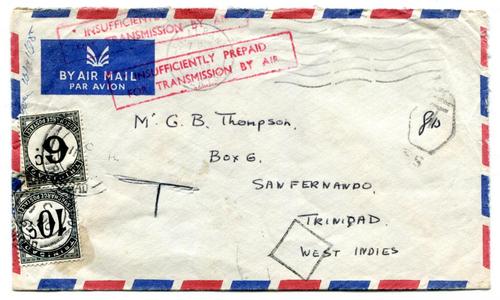 INSUFFICIENTLY
TRANSMISSION BY
INSUFFICIENTLY PREPAID
FOR TRANSMISSION BY AIR
BY AIR MAIL
PAR AVION
Mr G. B. Thompson,
Box 6.
SANFERNANDO,
TRINIDAD.
WEST INDIES
T
6
10